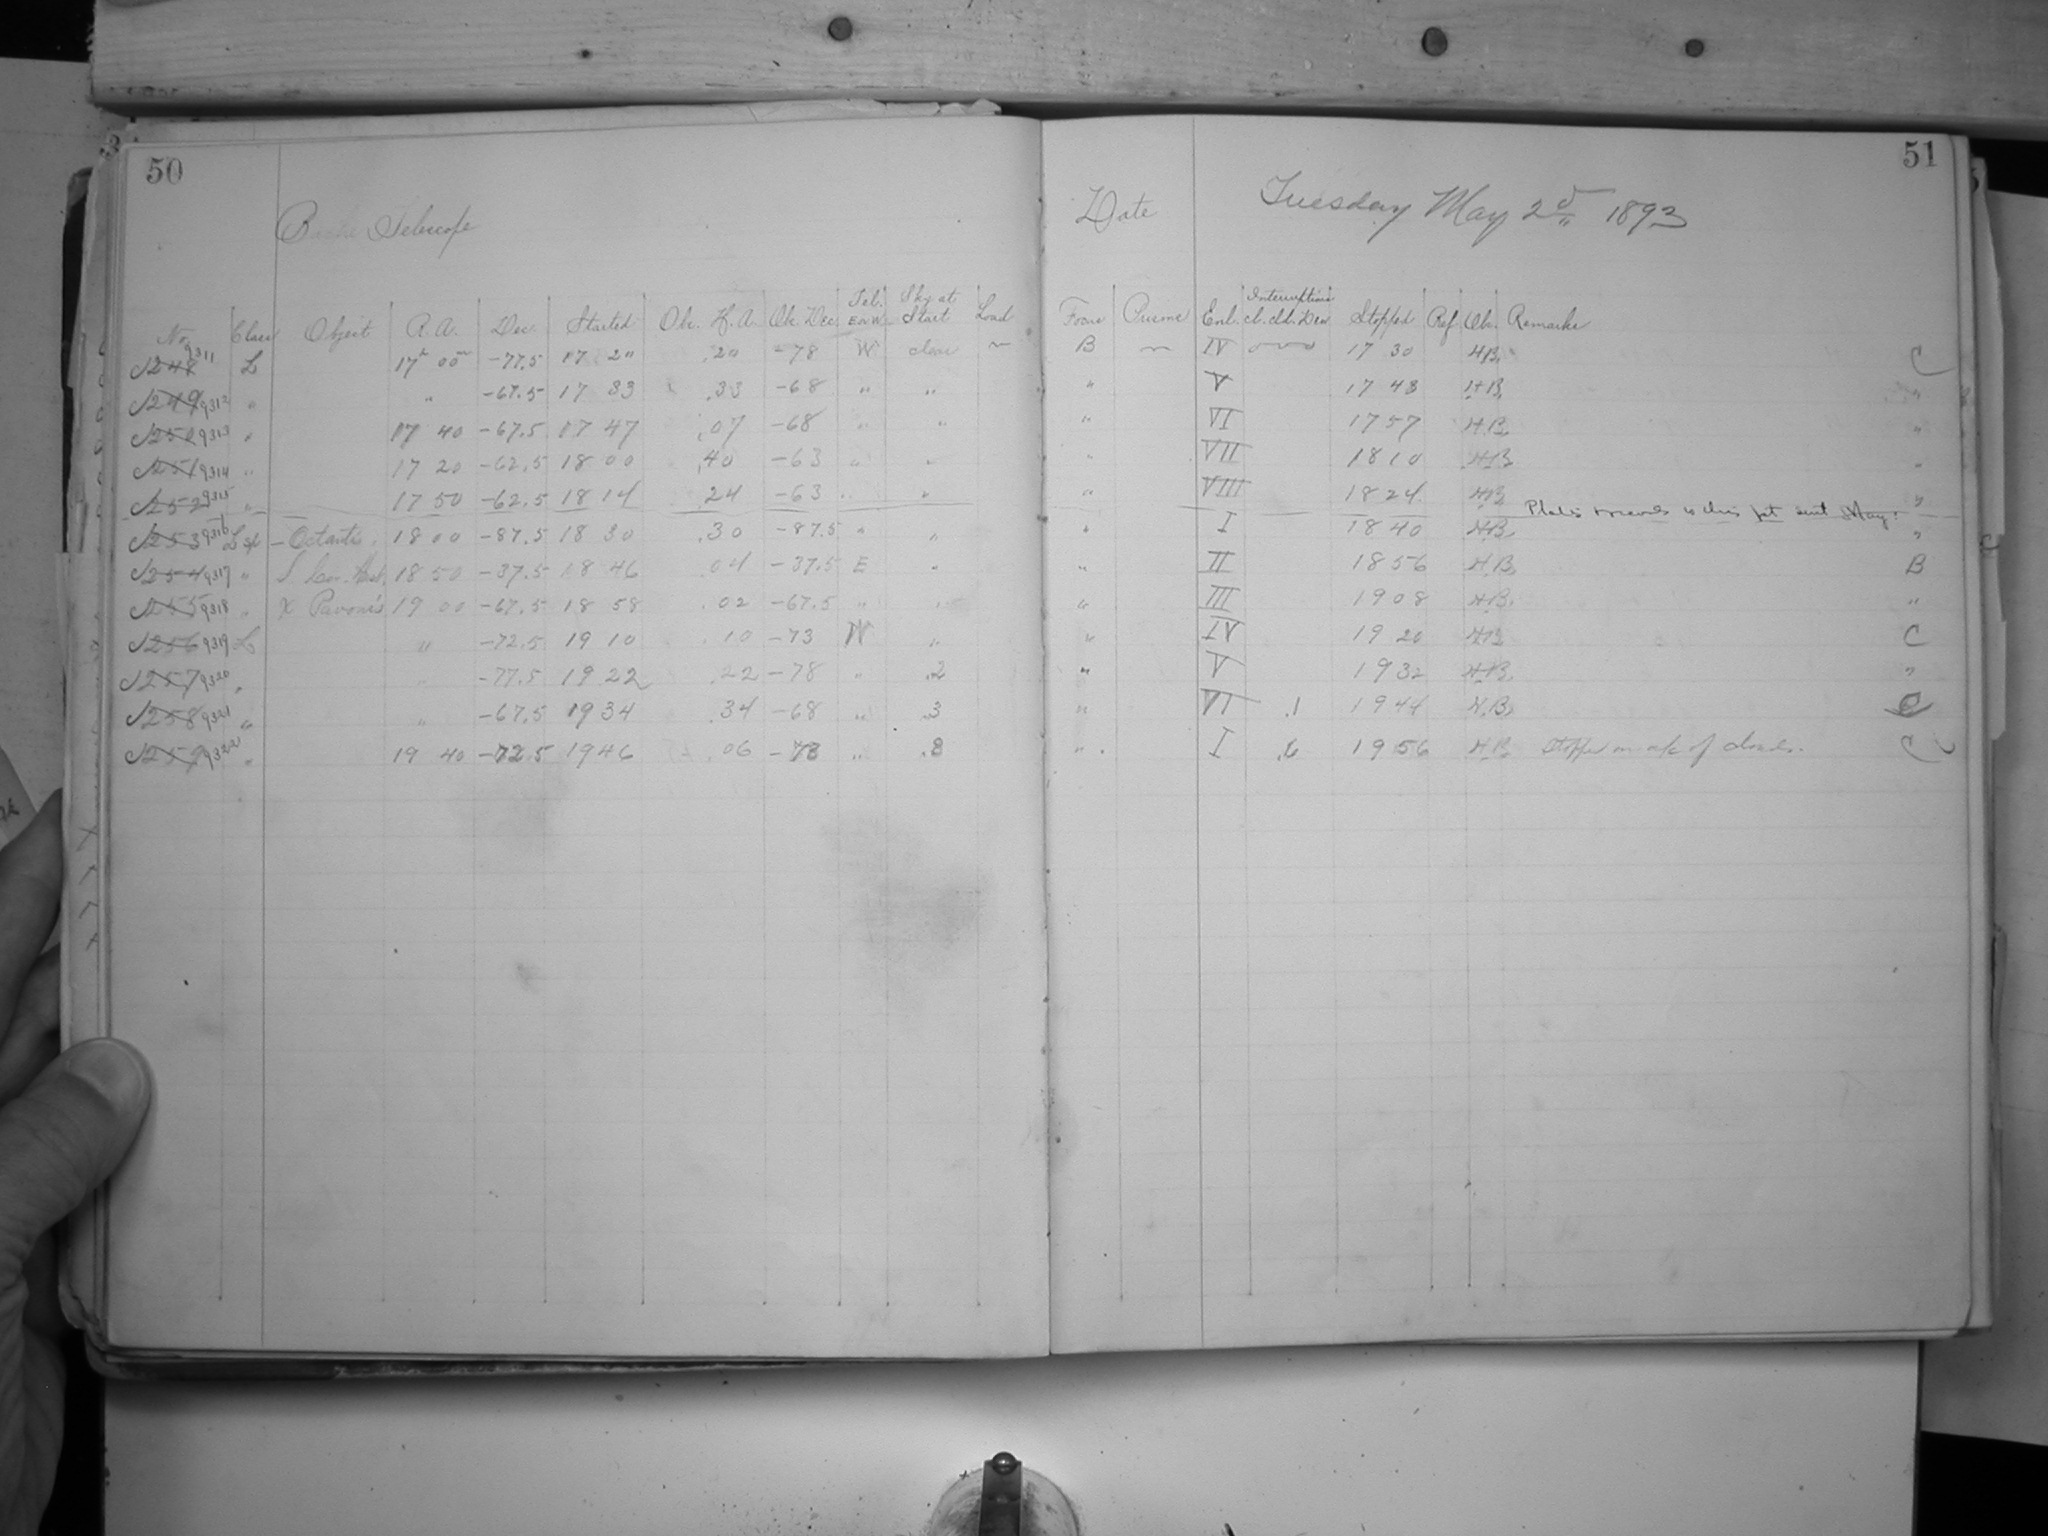 50
51
Bache Telescope
Date Tuesday May 2d 1893
No. Class Object R.A. Dec. Started Obs. H.A. Obs. Dec. Tel. E or W Sky at Start Load Focus Prisms Exel. Interruptions cl. cld. Dew Stopped Ref. Obs. Remarks
1248 9311 L 17h 00m -77.5 17 20 .20 -78 W clear ~ B ~ IV 17 30 H.B. C
1249 9312 " " -67.5 17 33 .33 -68 " " " V 17 43 H.B. "
1250 9313 " 17 40 -67.5 17 47 .07 -68 " " " VI 17 57 H.B. "
1251 9314 " 17 20 -62.5 18 00 .40 -63 " " " VII 18 10 H.B. "
1252 9315 " 17 50 -62.5 18 14 .24 -63 " " " VIII 18 24 H.B. "
Plates & records to this pt sent May
1253 9316 L sp - Octantis 18 00 -87.5 18 30 .30 -87.5 " " " I 18 40 H.B. "
1254 9317 " S Cor. Aust. 18 50 -37.5 18 46 .04 -37.5 E " " II 18 56 H.B. B
1255 9318 " X Pavonis 19 00 -67.5 18 58 .02 -67.5 " " " III 19 08 H.B. "
1256 9319 L " -72.5 19 10 .10 -73 W " " IV 19 20 H.B. C
1257 9320 " " -77.5 19 22 .22 -78 " .2 " V 19 32 H.B. "
1258 9321 " " -67.5 19 34 .34 -68 " .3 " VI .1 19 44 H.B. C
1259 9322 " 19 40 -72.5 19 46 .06 -73 " .8 " I .6 19 56 H.B. Stopped on a/c of clouds. C